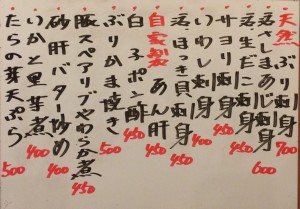 天然 ぶり刺身 700
しまあじ刺身 600
活生だこ刺身 400
サヨリ刺身
いわし刺身 400
活ほっき貝刺身 450
自家製 あん肝 450
白子ポン酢 450
ぶりかま焼き 500
豚スペアリブやわらか煮 450
砂肝バター炒め 400
いかと里芋煮 400
たらの芽天ぷら 500